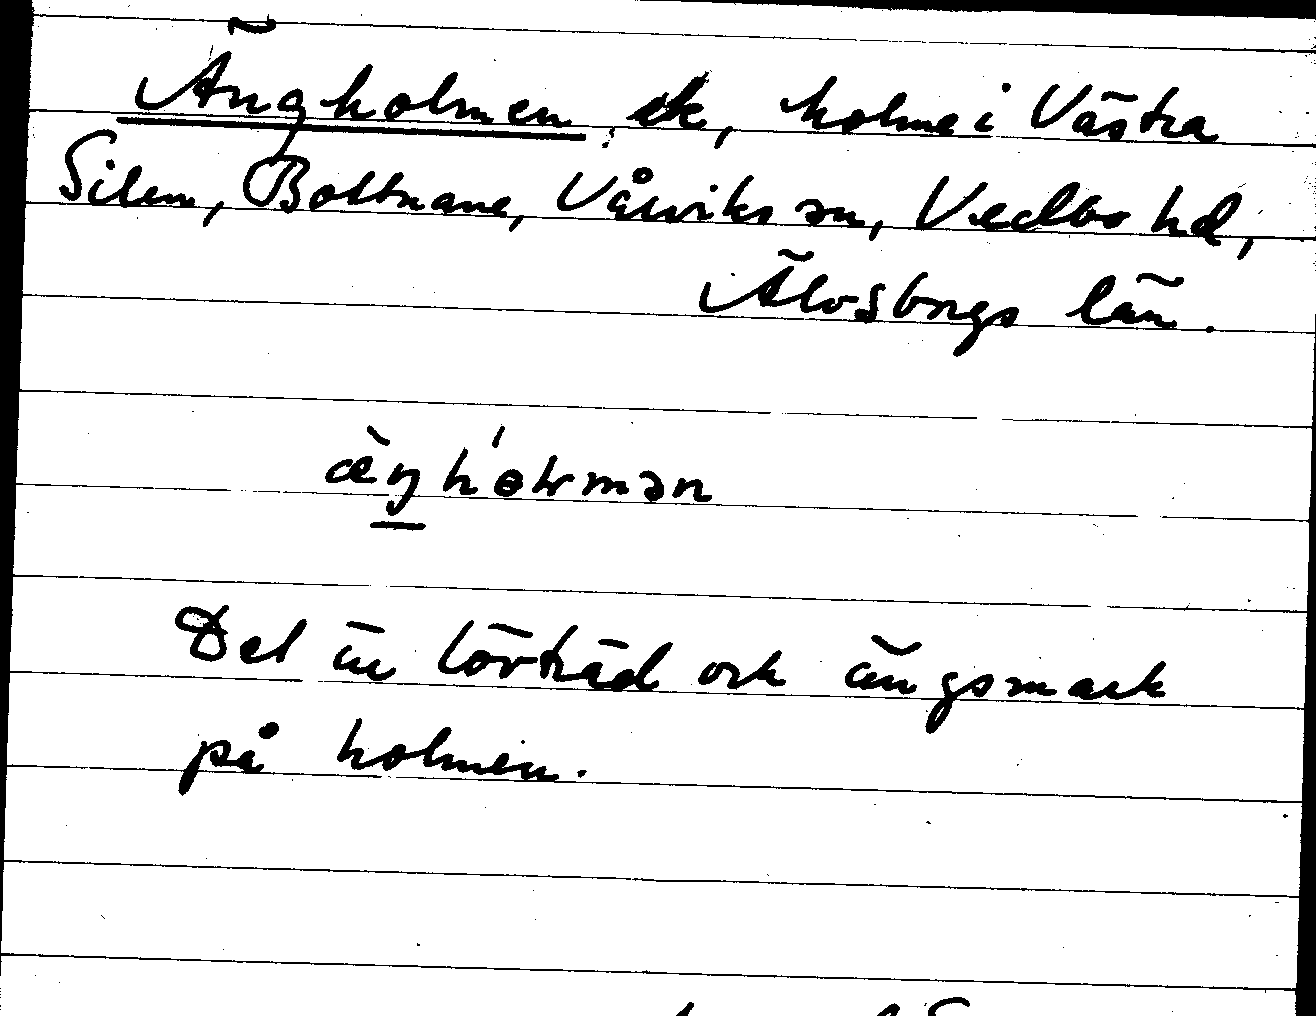 Ängholmen, ek, holme i Västra
Silen, Bottnane, Vårviks sn, Vedbo hd,
Älvsborgs län.
æ̀ŋhɵ́ɽmən
Det är lövträd och ängsmark
på holmen.